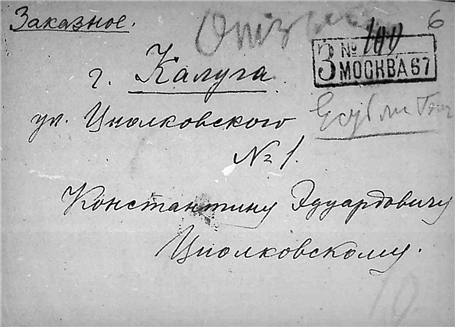 Заказное.
6
З № 100
МОСКВА 67
г. Калуга
ул. Циолковского
№ 1.
Константину Эдуардовичу
Циолковскому.